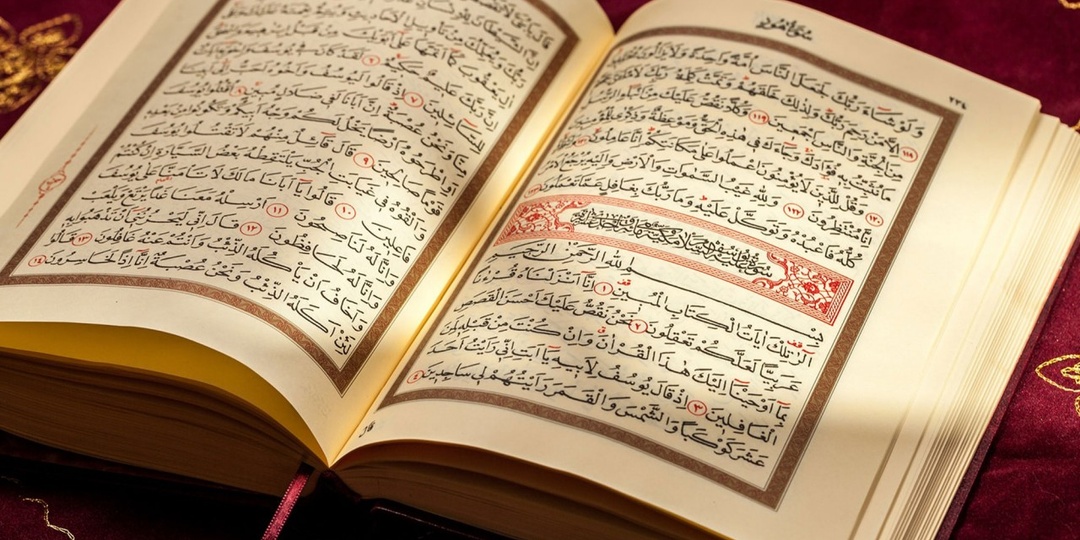 سورة هود
٢٣٤
وَلَوْ شَاءَ رَبُّكَ لَجَعَلَ النَّاسَ أُمَّةً وَاحِدَةً وَلَا يَزَالُونَ مُخْتَلِفِينَ ١١٨
إِلَّا مَنْ رَحِمَ رَبُّكَ وَلِذٰلِكَ خَلَقَهُمْ وَتَمَّتْ كَلِمَةُ رَبِّكَ لَأَمْلَأَنَّ جَهَنَّمَ
مِنَ الْجِنَّةِ وَالنَّاسِ أَجْمَعِينَ ١١٩ وَكُلًّا نَقُصُّ عَلَيْكَ مِنْ أَنْبَاءِ الرُّسُلِ
مَا نُثَبِّتُ بِهِ فُؤَادَكَ وَجَاءَكَ فِي هٰذِهِ الْحَقُّ وَمَوْعِظَةٌ وَذِكْرٰى لِلْمُؤْمِنِينَ ١٢٠
وَقُلْ لِلَّذِينَ لَا يُؤْمِنُونَ اعْمَلُوا عَلٰى مَكَانَتِكُمْ إِنَّا عَامِلُونَ ١٢١ وَانْتَظِرُوا
إِنَّا مُنْتَظِرُونَ ١٢٢ وَلِلّٰهِ غَيْبُ السَّمٰوَاتِ وَالْأَرْضِ وَإِلَيْهِ يُرْجَعُ الْأَمْرُ
كُلُّهُ فَاعْبُدْهُ وَتَوَكَّلْ عَلَيْهِ وَمَا رَبُّكَ بِغَافِلٍ عَمَّا تَعْمَلُونَ
بِسْمِ اللّٰهِ الرَّحْمٰنِ الرَّحِيمِ
الٓرٰ تِلْكَ اٰيَاتُ الْكِتَابِ الْمُبِينِ ١ إِنَّا أَنْزَلْنَاهُ قُرْاٰنًا
عَرَبِيًّا لَعَلَّكُمْ تَعْقِلُونَ ٢ نَحْنُ نَقُصُّ عَلَيْكَ أَحْسَنَ الْقَصَصِ
بِمَا أَوْحَيْنَا إِلَيْكَ هٰذَا الْقُرْاٰنَ وَإِنْ كُنْتَ مِنْ قَبْلِهِ لَمِنَ
الْغَافِلِينَ ٣ إِذْ قَالَ يُوسُفُ لِأَبِيهِ يَا أَبَتِ إِنِّي رَأَيْتُ أَحَدَ
عَشَرَ كَوْكَبًا وَالشَّمْسَ وَالْقَمَرَ رَأَيْتُهُمْ لِي سَاجِدِينَ ٤
قال
رَبُّكَ عَلِيمٌ حَكِيمٌ ٦ لَقَدْ كَانَ فِي يُوسُفَ وَإِخْوَتِهِ اٰيَاتٌ
لِلسَّائِلِينَ ٧ إِذْ قَالُوا لَيُوسُفُ وَأَخُوهُ أَحَبُّ إِلٰى أَبِينَا
مِنَّا وَنَحْنُ عُصْبَةٌ إِنَّ أَبَانَا لَفِي ضَلَالٍ مُبِينٍ ٨ اقْتُلُوا يُوسُفَ
أَوِ اطْرَحُوهُ أَرْضًا يَخْلُ لَكُمْ وَجْهُ أَبِيكُمْ وَتَكُونُوا مِنْ بَعْدِهِ
قَوْمًا صَالِحِينَ ٩ قَالَ قَائِلٌ مِنْهُمْ لَا تَقْتُلُوا يُوسُفَ
وَأَلْقُوهُ فِي غَيَابَتِ الْجُبِّ يَلْتَقِطْهُ بَعْضُ السَّيَّارَةِ إِنْ كُنْتُمْ
فَاعِلِينَ ١٠ قَالُوا يَا أَبَانَا مَا لَكَ لَا تَأْمَنَّا عَلٰى يُوسُفَ
وَإِنَّا لَهُ لَنَاصِحُونَ ١١ أَرْسِلْهُ مَعَنَا غَدًا يَرْتَعْ وَيَلْعَبْ
وَإِنَّا لَهُ لَحَافِظُونَ ١٢ قَالَ إِنِّي لَيَحْزُنُنِي أَنْ تَذْهَبُوا بِهِ
وَأَخَافُ أَنْ يَأْكُلَهُ الذِّئْبُ وَأَنْتُمْ عَنْهُ غَافِلُونَ ١٣ قَالُوا
لَئِنْ أَكَلَهُ الذِّئْبُ وَنَحْنُ عُصْبَةٌ إِنَّا إِذًا لَخَاسِرُونَ ١٤